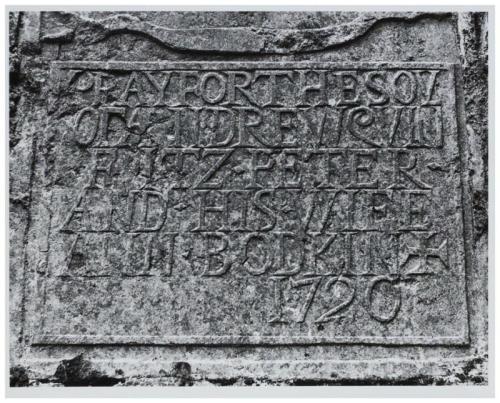 PRAY FOR THE SOV
OF ANDREW QVIN
FITZ · PETER ·
AND · HIS · WIFE
ANN · BODKIN +
1720